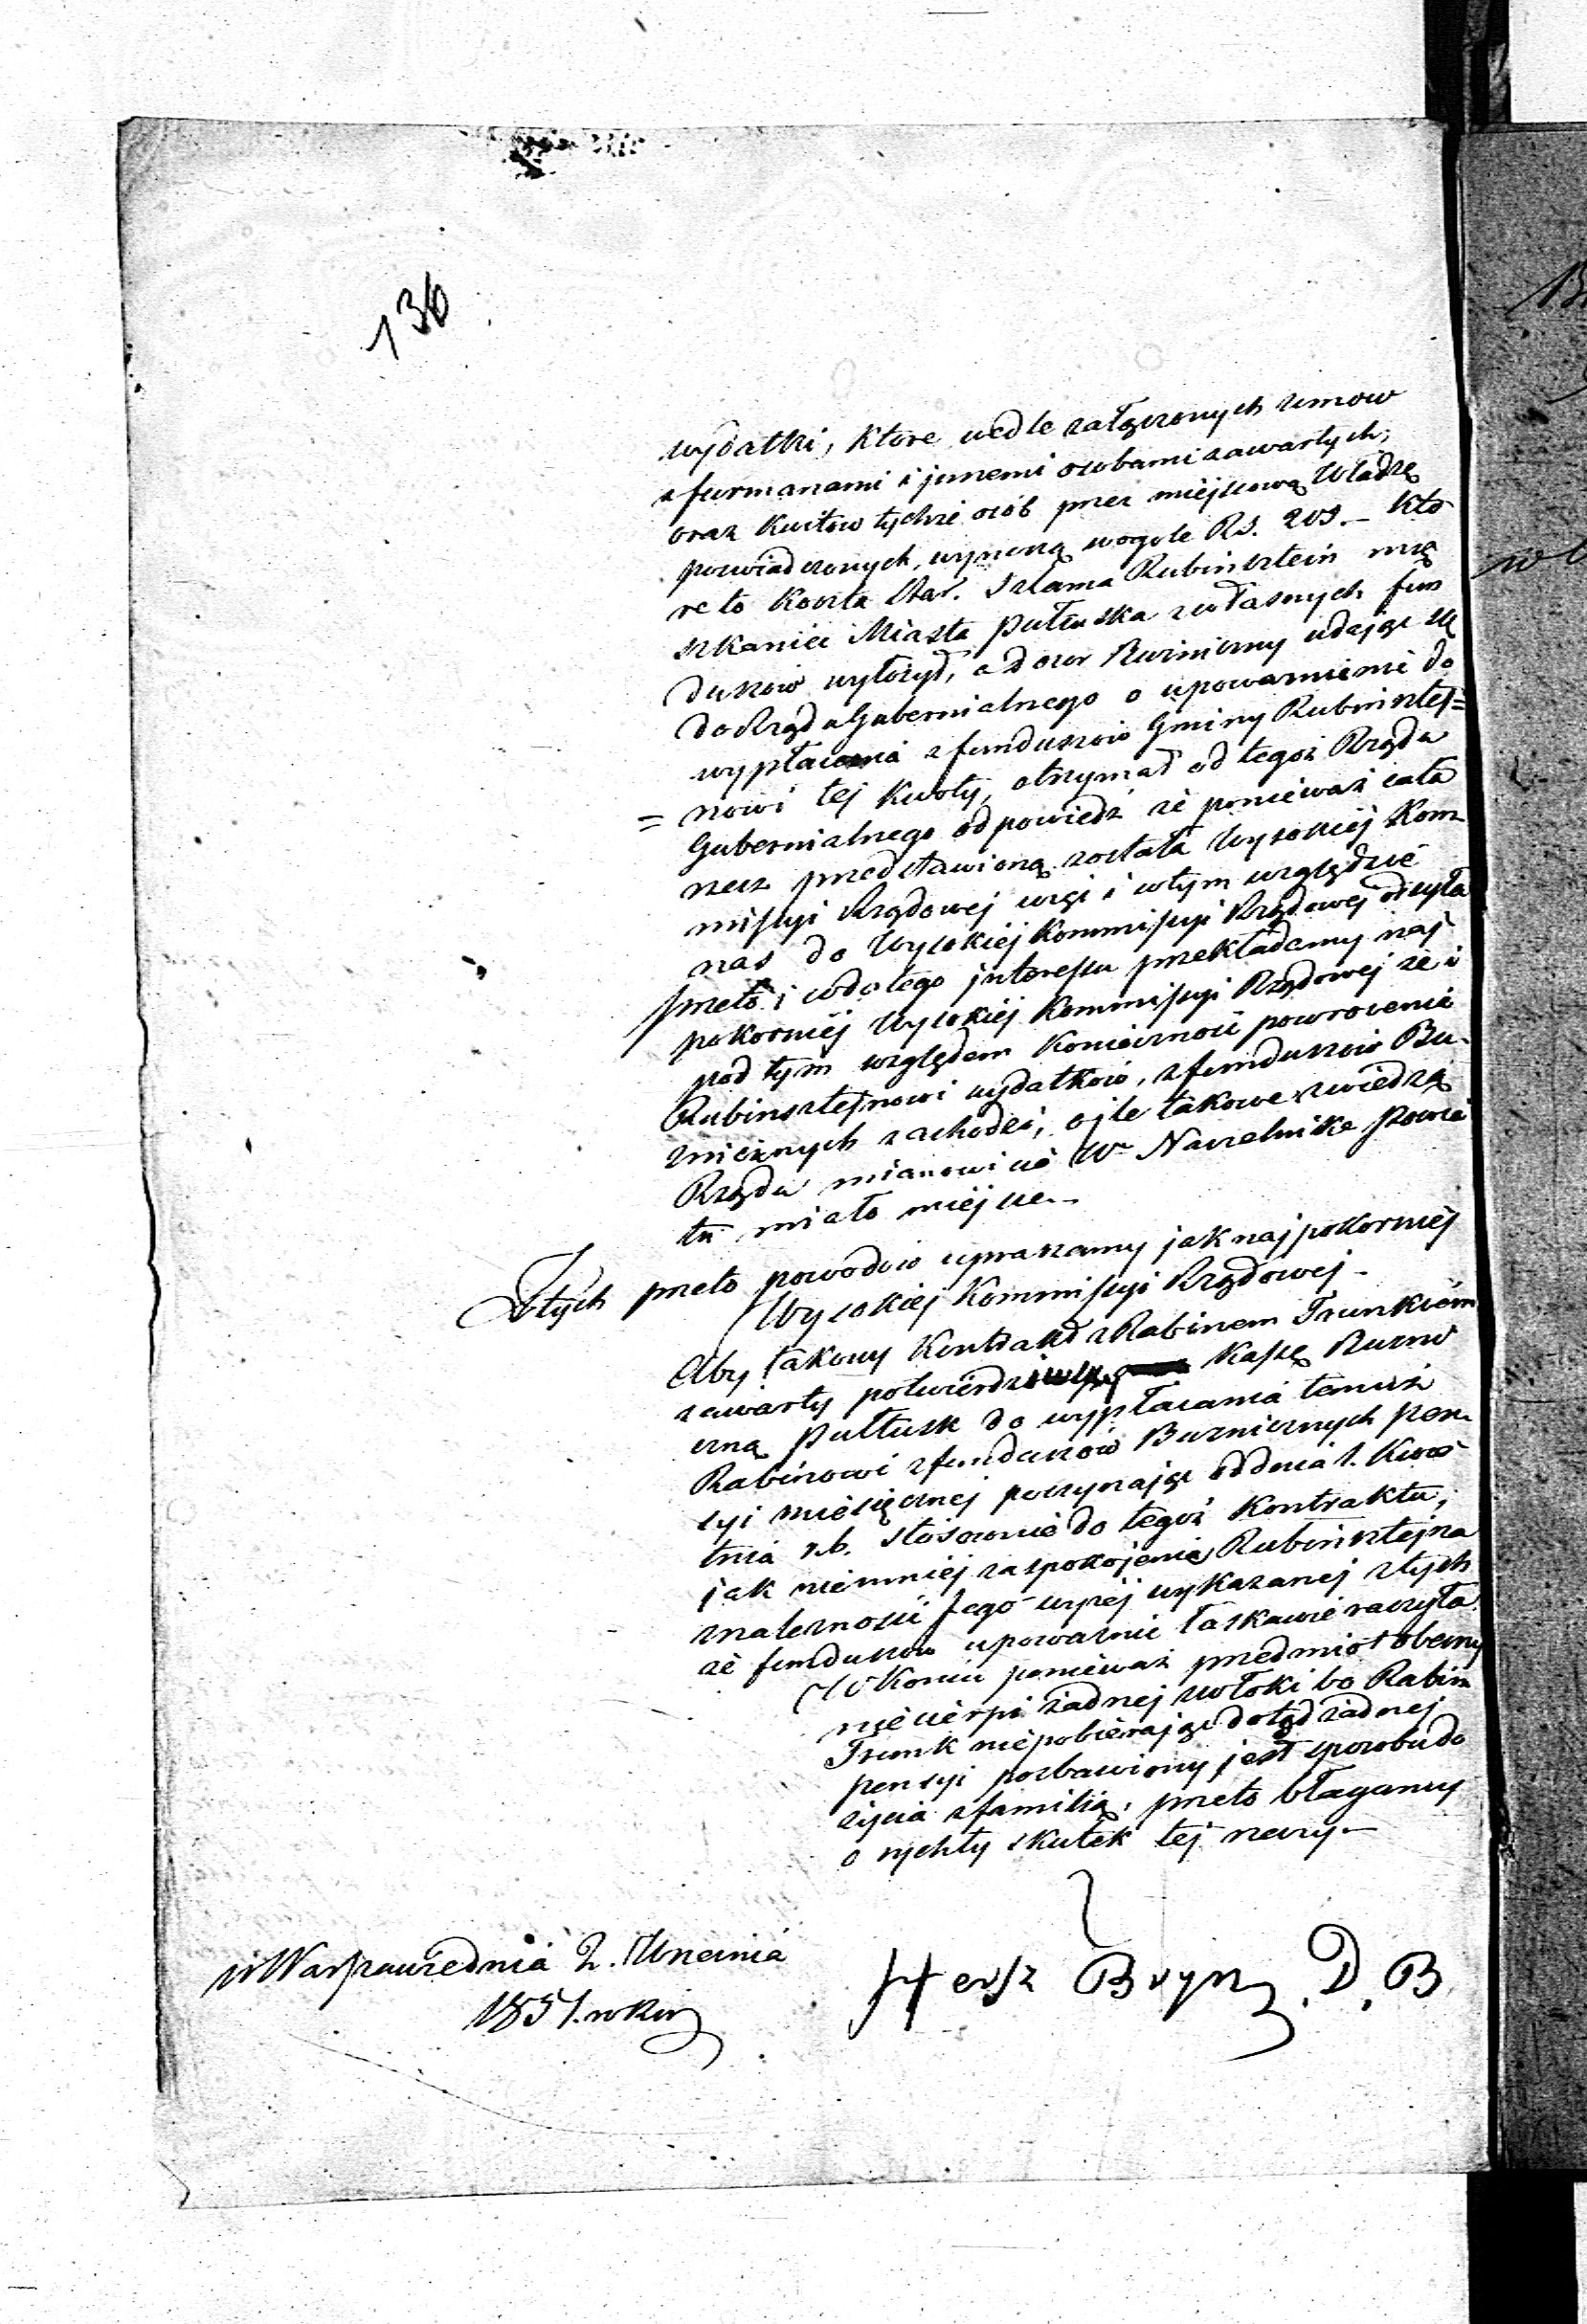 136
wydatki, które wedle załączonych umow
z furmanami i innemi osobami zawartych,
oraz kwitow tychże osób przez miejscową Władzę
poświadczonych, wynoszą wogole Rs. 209.– Któ
re to koszta Star. Szlama Rubinsztein mie
szkaniec Miasta Pułtuska z własnych fun
duszow wyłożył, a dozor Bużniczny udając się
do Rządu Gubernialnego o upoważnienie do
wypłacenia z funduszów Gminy Rubinsztej=
=nowi tej kwoty, otrzymał od tegoż Rządu
Gubernialnego odpowiedź że ponieważ cała
rzecz przedstawioną została Wysokiej Kom
missyi Rządowej więc i wtym względzie
nas do Wysokiej Kommissyi Rządowej odsyła
przeto i co do tego interessu przekładamy naj
pokorniej Wysokiej Kommissyi Rządowej że i
pod tym względem konieczność powrocenia
Rubinsztejnowi wydatków, z funduszów Bu
żnicznych zachodzi, o ile takowe z wiedzą
Rządu mianowicie W. Naczelnika Powia
tu miało miejsce.–
Ztych przeto powodów upraszamy jak najpokorniej
Wysokiej Kommissyi Rządowej –
Aby takowy Kontrakt z Rabinem Trunkiem
zawarty potwierdziwszy Kassę Bużni
czną Pułtusk do wypłacania temuż
Rabinowi z funduszów Bużnicznych pen
syi miesięcznej poczynając od dnia 1. Kwie
tnia r.b. stosownie do tegoż Kontraktu,
jak niemniej zaspokojenia Rubinsztejna
należności Jego wyżej wykazanej z tych
że funduszow upoważnić łaskawie raczyła.
W końcu ponieważ przedmiot obecny
niecierpi żadnej zwłoki bo Rabin
Trunk niepobierając dotąd żadnej
pensyi pozbawiony jest sposobu do
życia z familią, przeto błagamy
o rychły skutek tej rzeczy.–
w Warszawie dnia 2. Września
1851. roku
Hersz Bryn D. B